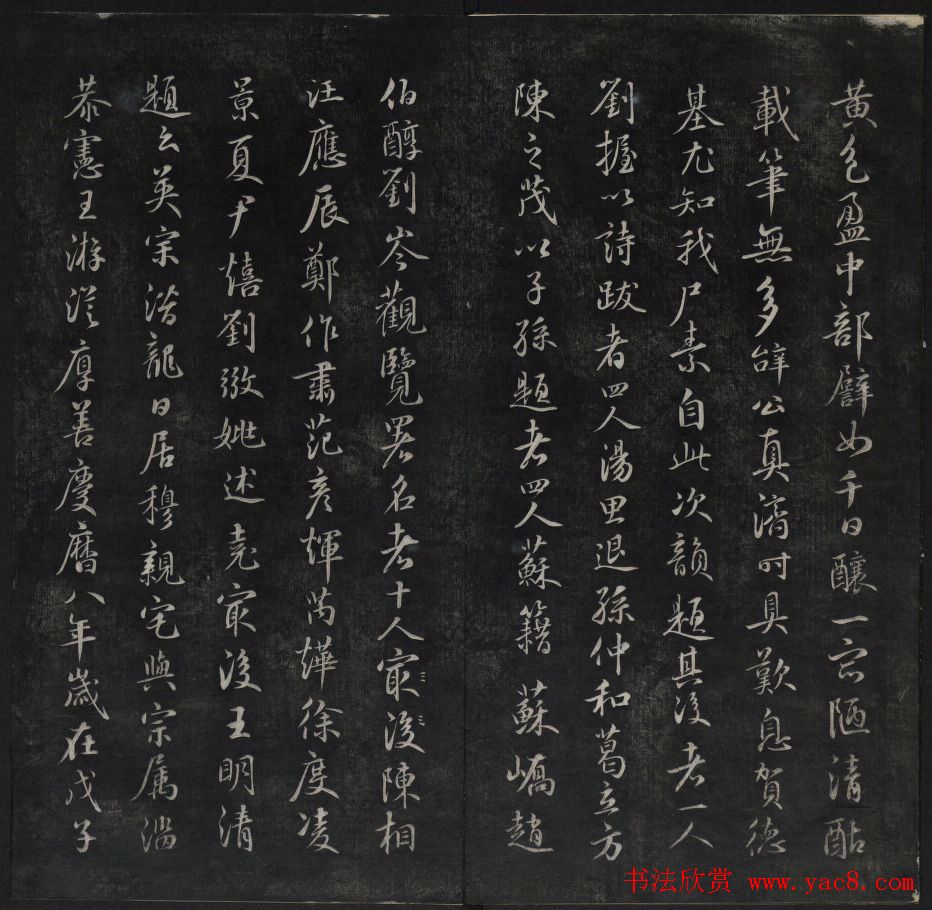 黄色盈中部譬如千日釀一宗陋清酤
載筆無多辭公真濟時具歎息賀德
基尤知我尸素自此次韻題其後者一人
劉握以詩跋者四人湯思退孫仲和葛立方
陳之茂以子孫題者四人蘇籀蘇嶠趙
伯醇劉岑觀覽署名者十人寂後陳相
汪應辰鄭作肅范彦輝萬燁徐度凌
景夏尹熺劉璈姚述堯寂後王明清
題云英宗潛龍日居穆親宅與宗属
恭憲王游從厚善慶曆八年歲在戊子
书法欣赏 www.yac8.com